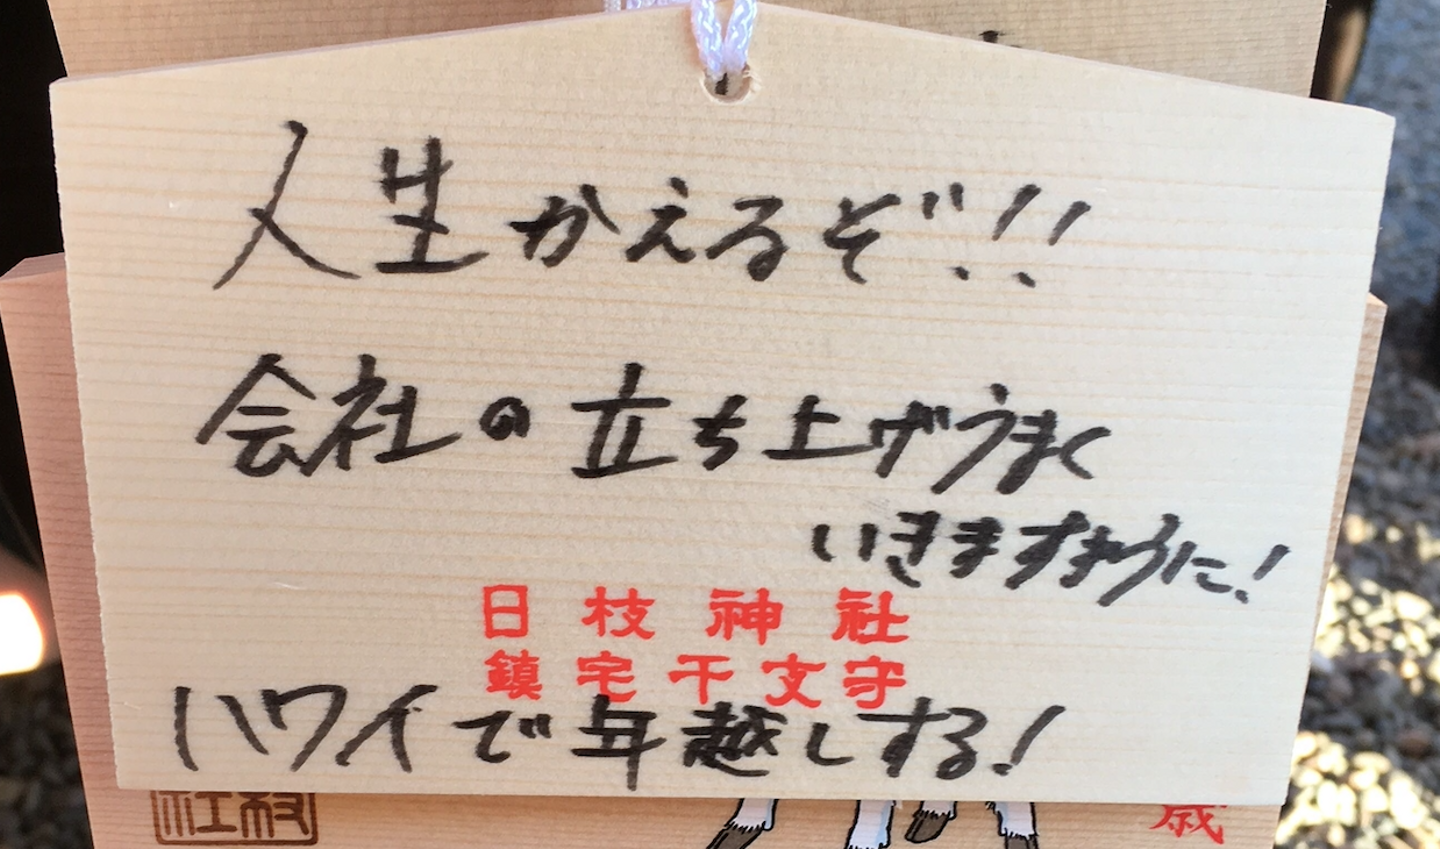 人生かえるぞ!!
会社の立ち上げうまく
いきますように!
日枝神社
鎮宅干支守
ハワイで年越しする!
歳